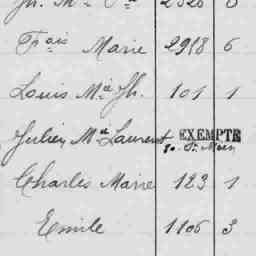 Fçois Marie 2998 6
Louis Mie Jh. 101 1
Julien Mie Laurent EXEMPTÉ
Charles Marie 123 1
Emile 1106 3